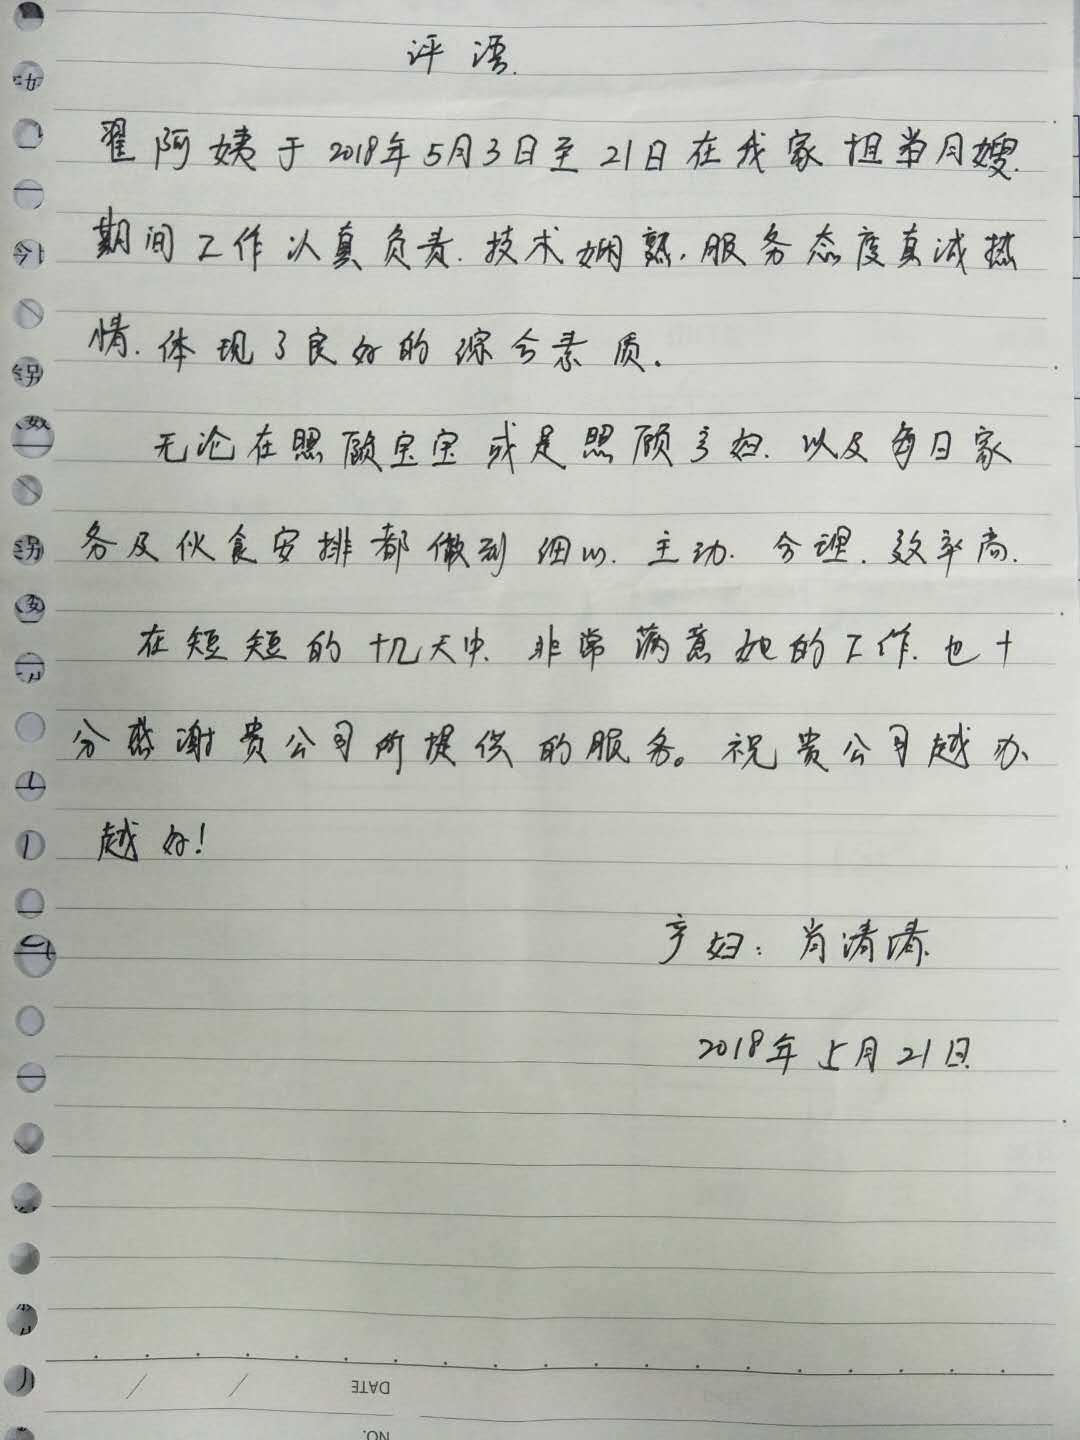 评语.
翟阿姨于2018年5月3日至21日在我家担当月嫂.
期间工作认真负责.技术娴熟.服务态度真诚热
情.体现了良好的综合素质.
无论在照顾宝宝或是照顾产妇.以及每日家
务及伙食安排都做到细心.主动.合理.效率高.
在短短的十几天中.非常满意她的工作.也十
分感谢贵公司所提供的服务。祝贵公司越办
越好!
产妇:肖清清.
2018年5月21日.
DATE / /
NO.